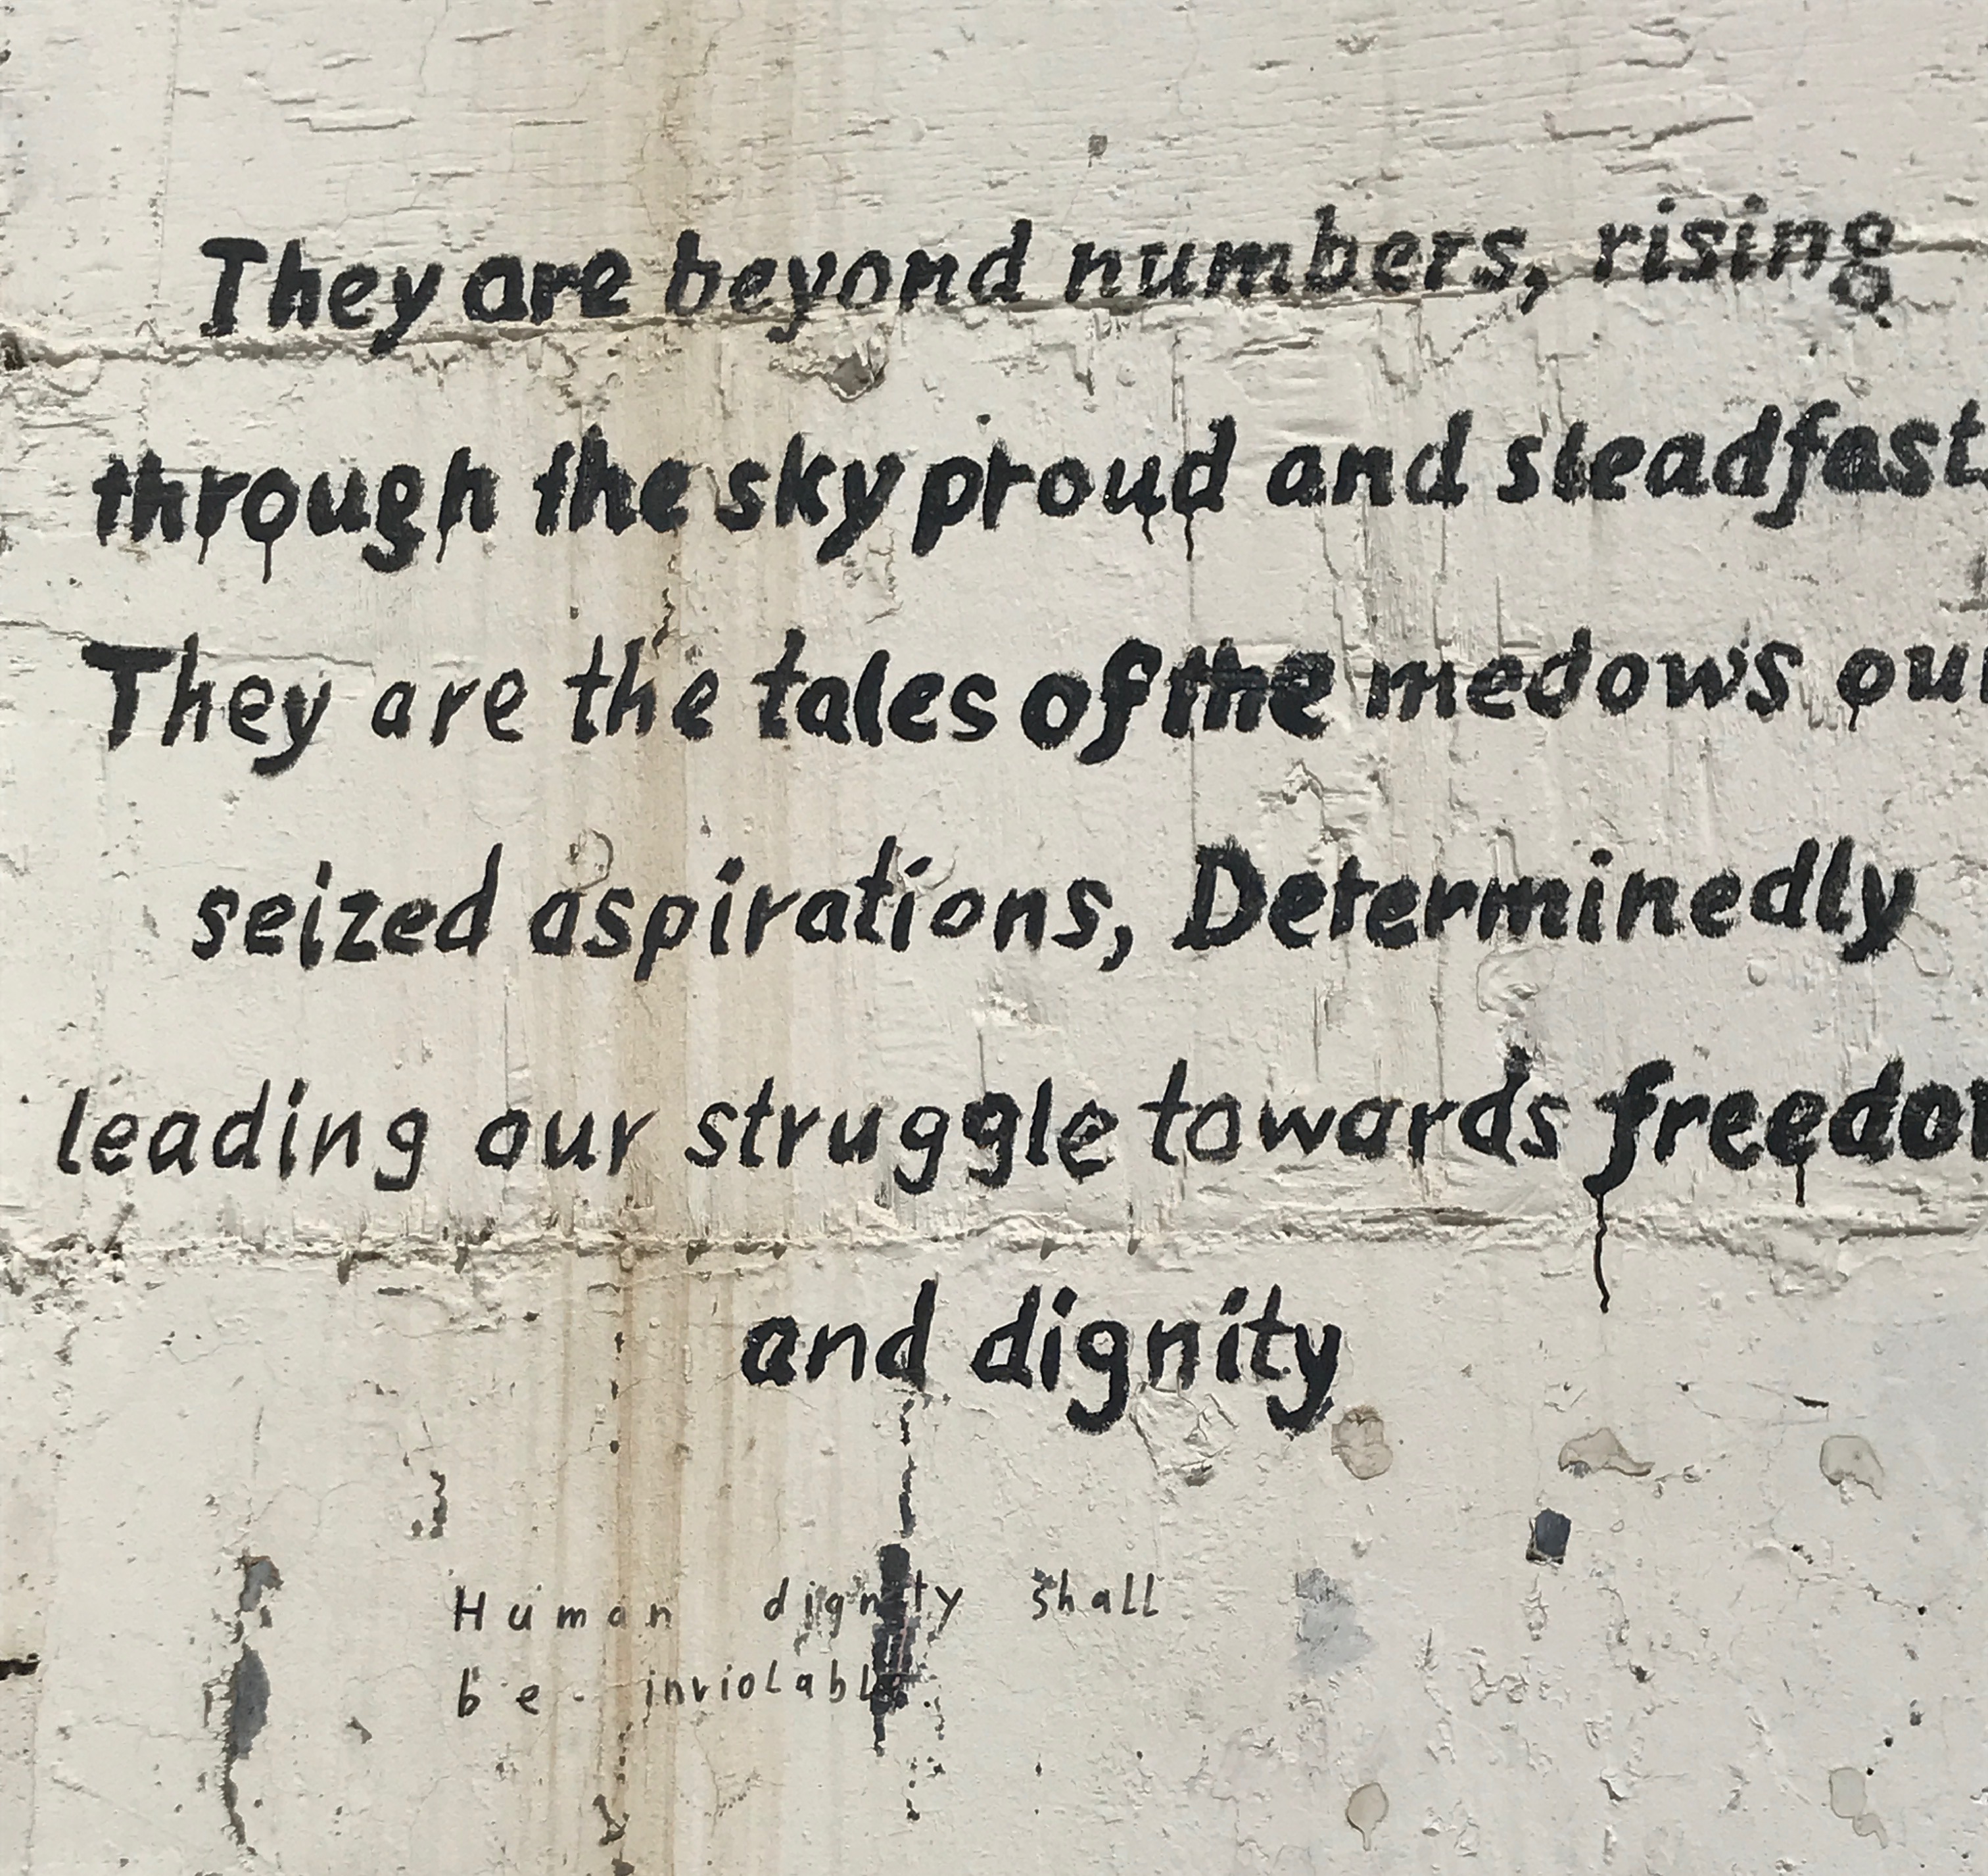 They are beyond numbers, rising
through the sky proud and steadfast.
They are the tales of the medows our
seized aspirations, Determinedly
leading our struggle towards freedom
and dignity
Human dignity shall
be inviolable